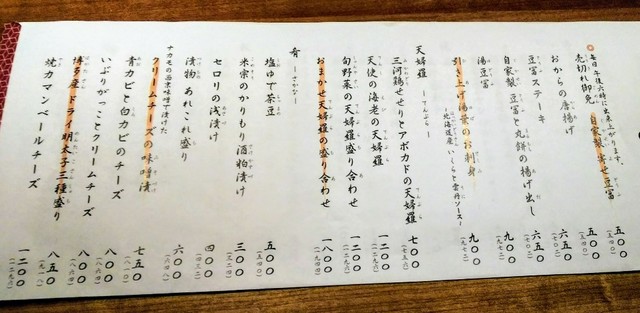 ◎毎日午後六時に出来上がります。
売切れ御免 自家製 寄せ豆富 五〇〇 (五四〇)
おからの唐揚げ
豆富ステーキ 六五〇 (七〇二)
自家製 豆富と丸餅の揚げ出し 六五〇 (七〇二)
湯豆富 九〇〇 (九七二)
引き上げ湯葉のお刺身 九〇〇 (九七二)
~北海道産いくらと雲丹ソース~
天婦羅 ~てんぷら~
三河鶏せせりとアボカドの天婦羅 七〇〇 (七五六)
天使の海老の天婦羅 一二〇〇 (一二九六)
旬野菜の天婦羅盛り合わせ 一二〇〇 (一二九六)
おまかせ天婦羅の盛り合わせ 一八〇〇 (一九四四)
肴 ~さかな~
塩ゆで茶豆 五〇〇 (五四〇)
米宗のかりもり酒粕漬け 三〇〇 (三二四)
セロリの浅漬け 四〇〇 (四三二)
漬物 あれこれ盛り 六〇〇 (六四八)
ナカモの西京味噌で漬けた
クリームチーズの味噌漬 七五〇 (八一〇)
青カビと白カビのチーズ 八〇〇 (八六四)
いぶりがっことクリームチーズ 八〇〇 (八六四)
博多産 ドライ明太子三種盛り 八五〇 (九一八)
焼カマンベールチーズ 一二〇〇 (一二九六)